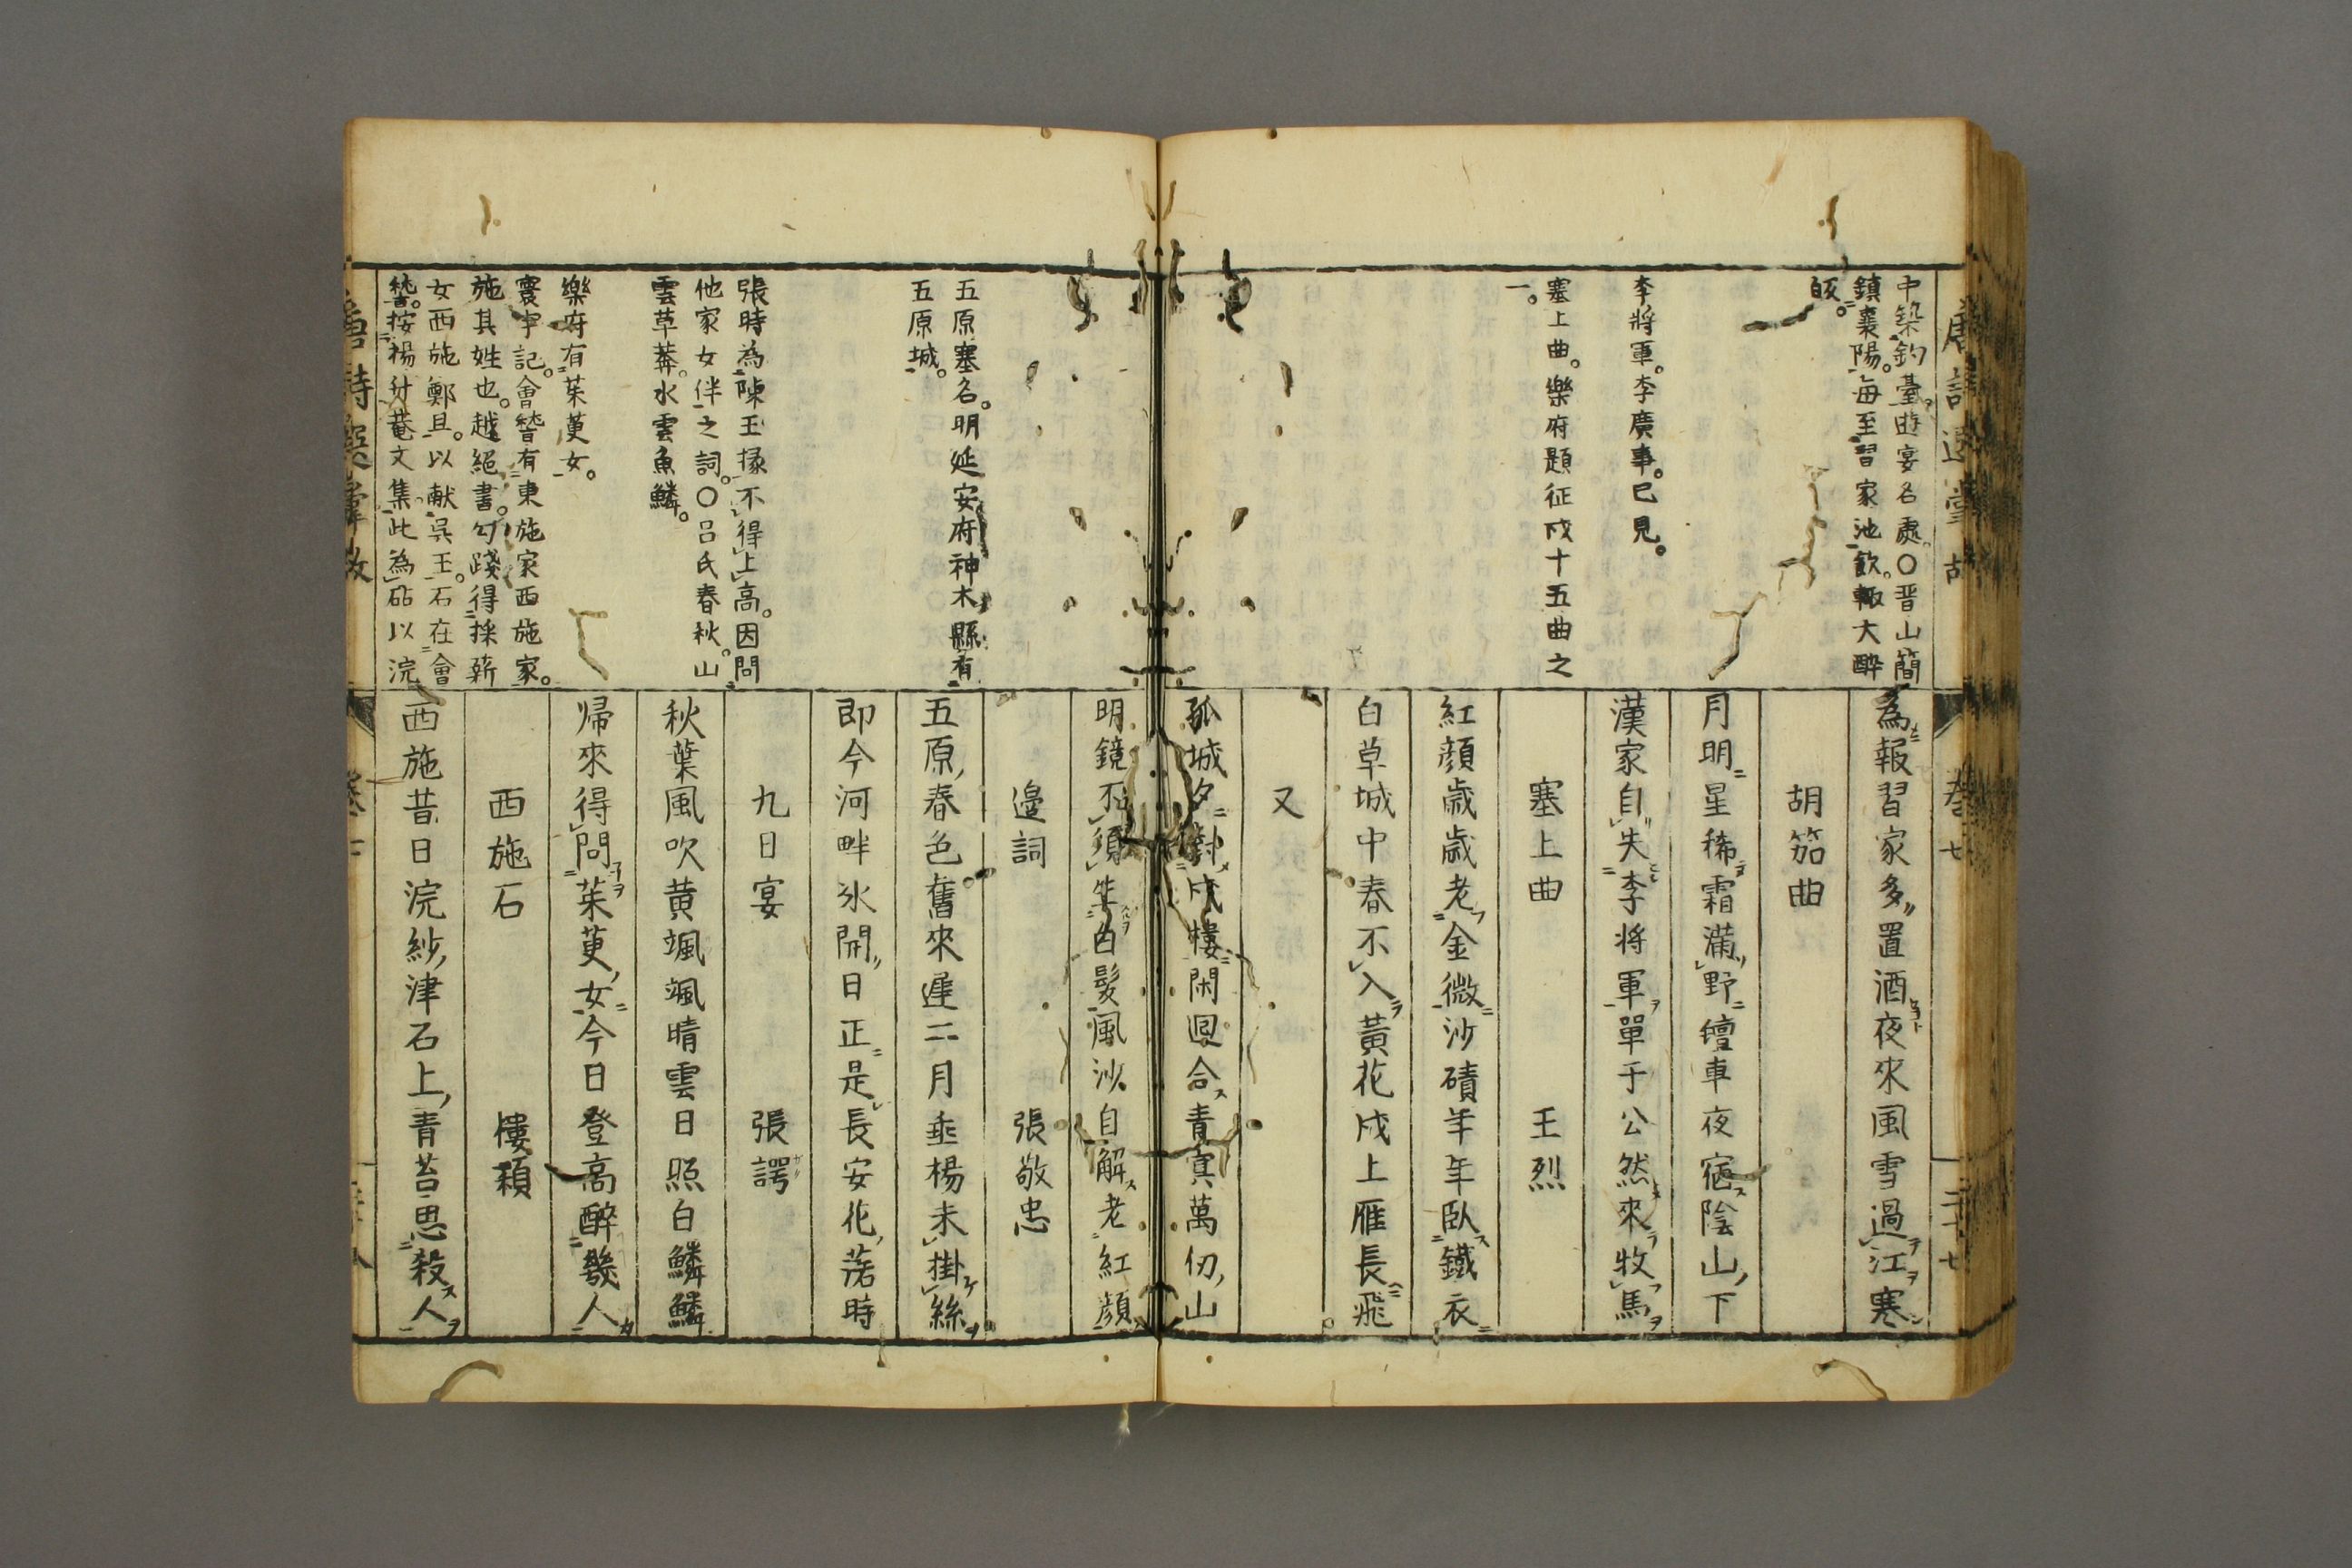 中築釣臺遊宴名處〇晋山簡
鎮襄陽。每至習家池飲。輙大醉
李將軍。李廣事。已見。
塞上曲。樂府題征戍十五曲之
一。
為報習家多置酒夜來風雪過江寒
胡笳曲
月明星稀霜滿野氊車夜宿陰山下
漢家自失李將軍單于公然來牧馬
塞上曲 王烈
紅顔歳歳老金微沙磧年年臥鐵衣
白草城中春不入黃花戍上雁長飛
又
孤城夕對戍樓閑回合青冥萬仞山
卷七
三十七
五原塞名。明延安府神木縣有
五原城。
張時為陳王掾不得上高。因問
他家女伴之詞。〇呂氏春秋。山
雲草莽。水雲魚鱗。
樂府有茱萸女。
寰宇記。會稽有東施家西施家。
施其姓也。越絕書。勾踐得採薪
女西施鄭旦。以献吳王。石在會
稽。按楊升菴文集此為砧以浣
明鏡不須生白髮風沙自解老紅顔
邉詞 張敬忠
五原春色舊來遲二月垂楊未掛絲
即今河畔氷開日正是長安花落時
九日宴 張諤
秋葉風吹黄颯颯晴雲日照白鱗鱗
帰來得問茱萸女今日登高醉幾人
西施石 樓穎
西施昔日浣紗津石上青苔思殺人